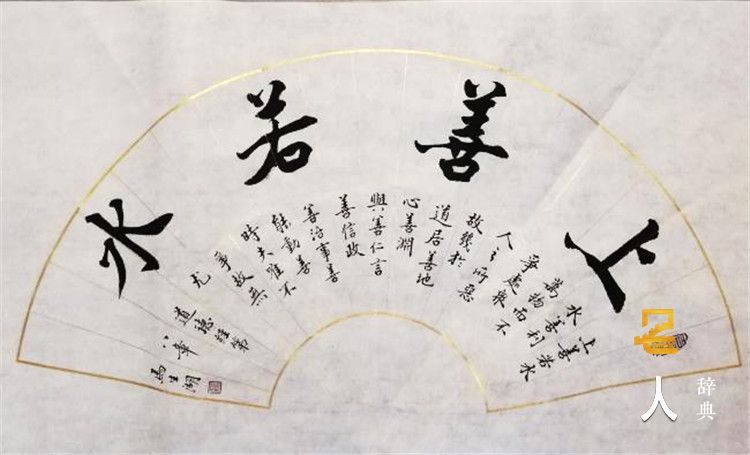 上善若水
上善若水
水善利
萬物而不
爭處衆
人之所惡
故幾於
道居善地
心善淵
與善仁言
善信政
善治事善
能動善
時夫唯不
爭故無
尤
道德經第
八章
馬生
人
辞典